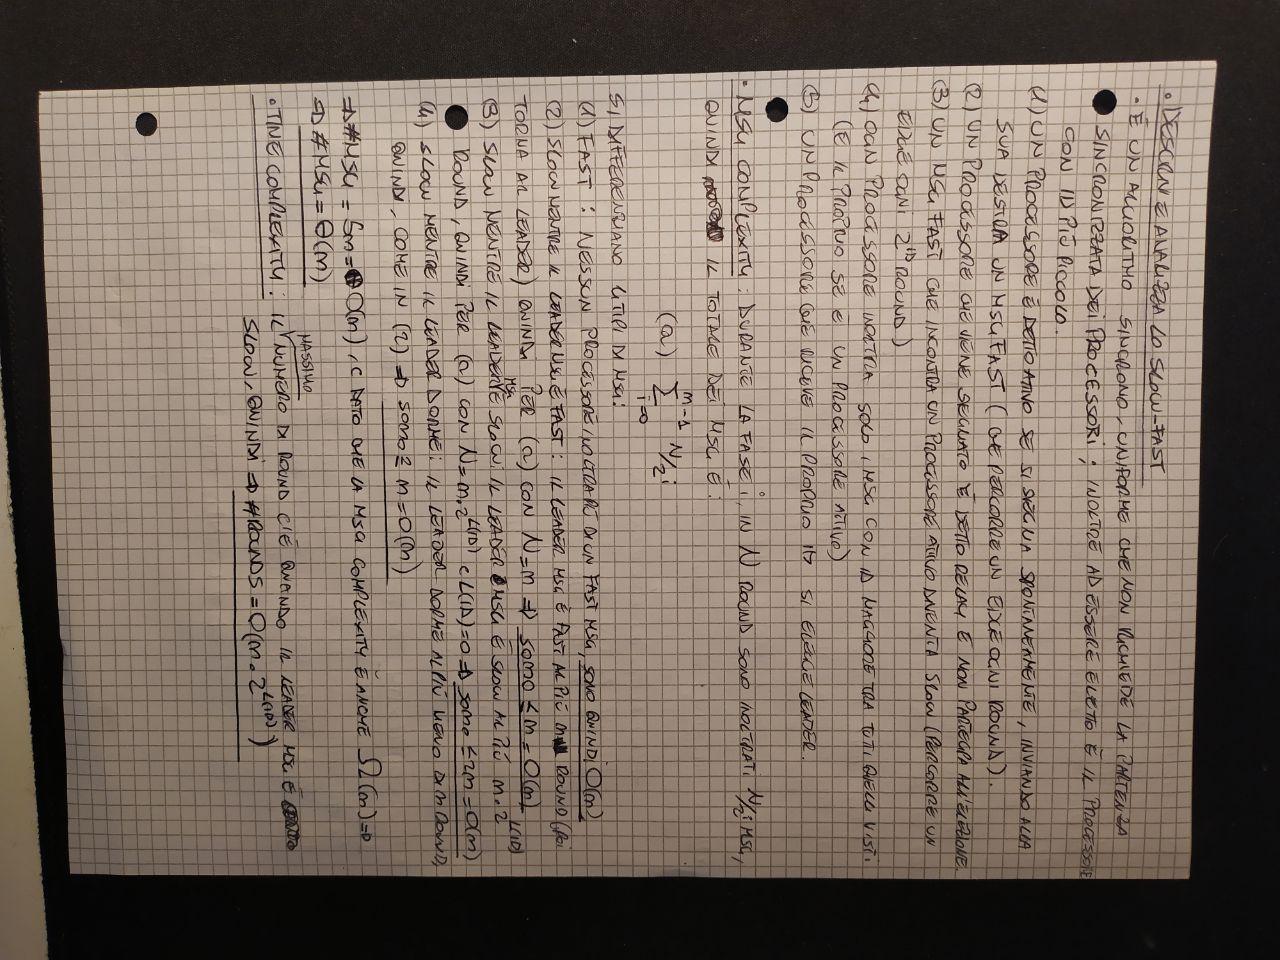 • DESCRIVI E ANALIZZA LO SLOW-FAST
• È UN ALGORITMO SINCRONO, UNIFORME CHE NON RICHIEDE LA PARTENZA
SINCRONIZZATA DEI PROCESSORI; INOLTRE AD ESSERE ELETTO È IL PROCESSORE
CON ID PIÙ PICCOLO.
(1) UN PROCESSORE È DETTO ATTIVO SE SI SVEGLIA SPONTANEAMENTE, INVIANDO ALLA
SUA DESTRA UN MSG FAST (CHE PERCORRE UN EDGE OGNI ROUND).
(2) UN PROCESSORE CHE VIENE SVEGLIATO È DETTO RELAY E NON PARTECIPA ALL'ELEZIONE.
(3) UN MSG FAST CHE INCONTRA UN PROCESSORE ATTIVO DIVENTA SLOW (PERCORRE UN
EDGE OGNI 2^ID ROUND)
(4) OGNI PROCESSORE INOLTRA SOLO I MSG CON ID MAGGIORE TRA TUTTI QUELLI VISTI
(E IL PROPRIO SE È UN PROCESSORE ATTIVO)
(5) UN PROCESSORE CHE RICEVE IL PROPRIO ID SI ELEGGE LEADER.
• MSG COMPLEXITY: DURANTE LA FASE i, IN N ROUND SONO INOLTRATI N/2^i MSG,
QUINDI IL TOTALE DEI MSG È:
(a) ∑ i=0 m-1 N/2^i
SI DIFFERENZIANO 4 TIPI DI MSG:
(1) FAST: NESSUN PROCESSORE INOLTRA PIÙ DI UN FAST MSG, SONO QUINDI O(m)
(2) SLOW MENTRE IL LEADER MSG È FAST: IL LEADER MSG È FAST AL PIÙ m ROUND (POI
TORNA AL LEADER) QUINDI PER (a) CON N=m ⇒ SONO ≤ m = O(m)
(3) SLOW MENTRE IL LEADER MSG È SLOW: IL LEADER MSG È SLOW AL PIÙ m·2^L(ID)
ROUND, QUINDI PER (a) CON N=m·2^L(ID) E L(ID)=0 ⇒ SONO ≤ 2m = O(m)
(4) SLOW MENTRE IL LEADER DORME: IL LEADER DORME AL PIÙ MENO DI m ROUND,
QUINDI, COME IN (2) ⇒ SONO ≤ m = O(m)
⇒ #MSG = 5m = O(m), E DATO CHE LA MSG COMPLEXITY È ANCHE Ω(m) ⇒
⇒ #MSG = Θ(m)
• TIME COMPLEXITY: IL MASSIMO NUMERO DI ROUND C'È QUANDO IL LEADER MSG È
SLOW, QUINDI ⇒ #ROUNDS = O(m·2^L(ID))